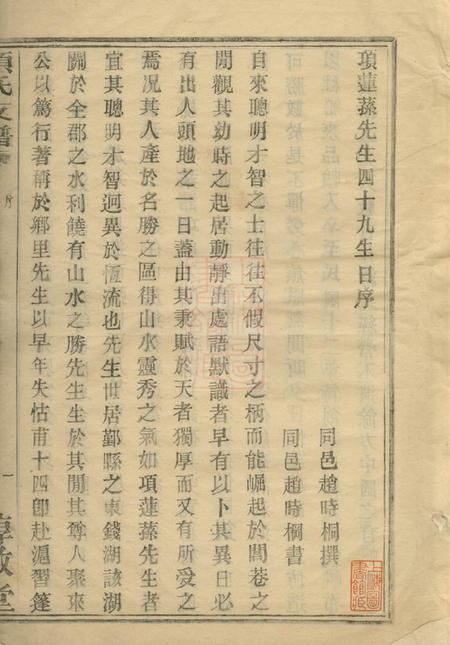 項蓮蓀先生四十九生日序
同邑趙時桐撰
同邑趙時棡書
自來聰明才智之士往往不假尺寸之柄而能崛起於閭巷之
間觀其幼時之起居動靜出處語默識者早有以卜其異日必
有出人頭地之一日蓋由其秉賦於天者獨厚而又有所受之
焉況其人產於名勝之區得山水靈秀之氣如項蓮蓀先生者
宜其聰明才智迥異於恆流也先生世居鄞縣之東錢湖該湖
關於全郡之水利饒有山水之勝先生生於其間其尊人聚來
公以篤行著稱於鄉里先生以早年失怙甫十四卽赴滬習篷
項氏支譜
序
一
敦堂
上海圖書館藏